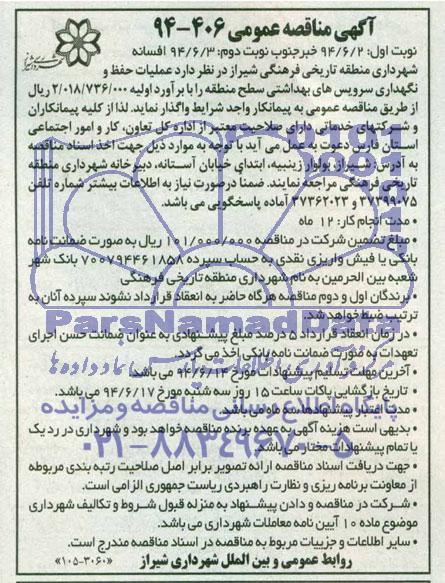 آگهی مناقصه عمومی ۴۰۶-۹۴
نوبت اول: ۹۴/۶/۲ خبرجنوب نوبت دوم: ۹۴/۶/۳ افسانه
شهرداری منطقه تاریخی فرهنگی شیراز در نظر دارد عملیات حفظ و
نگهداری سرویس های بهداشتی سطح منطقه را با برآورد اولیه ۲/۰۱۸/۷۳۶/۰۰۰ ریال
از طریق مناقصه عمومی به پیمانکار واجد شرایط واگذار نماید. لذا از کلیه پیمانکاران
و شرکتهای خدماتی دارای صلاحیت معتبر از اداره کل تعاون، کار و امور اجتماعی
استان فارس دعوت به عمل می آید با توجه به موارد ذیل جهت اخذ اسناد مناقصه
به آدرس: شیراز، بولوار زینبیه، ابتدای خیابان آستانه، دبیرخانه شهرداری منطقه
تاریخی فرهنگی مراجعه نمایند. ضمناً در صورت نیاز به اطلاعات بیشتر شماره تلفن
۳۷۳۹۹۰۷۵ و ۳۷۳۶۲۰۲۳ آماده پاسخگویی می باشد.
• مدت انجام کار: ۱۲ ماه
• مبلغ تضمین شرکت در مناقصه ۱۰۱/۰۰۰/۰۰۰ ریال به صورت ضمانت نامه
بانکی یا فیش واریزی نقدی به حساب سپرده ۷۰۰۷۹۴۴۶۱۸۵۸ بانک شهر
شعبه بین الحرمین به نام شهرداری منطقه تاریخی فرهنگی
• برندگان اول و دوم مناقصه هرگاه حاضر به انعقاد قرارداد نشوند سپرده آنان به
ترتیب ضبط خواهد شد.
• در زمان انعقاد قرارداد ۵ درصد مبلغ پیشنهادی به عنوان ضمانت حسن اجرای
تعهدات به صورت ضمانت نامه بانکی اخذ می گردد.
• آخرین مهلت تسلیم پیشنهادات مورخ ۹۴/۶/۱۴ می باشد.
• تاریخ بازگشایی پاکات ساعت ۱۵ روز سه شنبه مورخ ۹۴/۶/۱۷ می باشد.
• مدت اعتبار پیشنهادها سه ماه می باشد.
• بدیهی است هزینه آگهی به عهده برنده مناقصه خواهد بود و شهرداری در رد یک
یا تمام پیشنهادات مختار می باشد.
• جهت دریافت اسناد مناقصه ارائه تصویر برابر اصل صلاحیت رتبه بندی مربوطه
از معاونت برنامه ریزی و نظارت راهبردی ریاست جمهوری الزامی است.
• شرکت در مناقصه و دادن پیشنهاد به منزله قبول شروط و تکالیف شهرداری
موضوع ماده ۱۰ آیین نامه معاملات شهرداری می باشد.
• سایر اطلاعات و جزییات مربوط به مناقصه در اسناد مناقصه مندرج است.
روابط عمومی و بین الملل شهرداری شیراز «۳۰۶۰-۱۰۵»
ParsNamadData
پایگاه اطلاع رسانی مناقصه و مزایده
۰۲۱-۸۸۳۴۹۶۷۰-۵